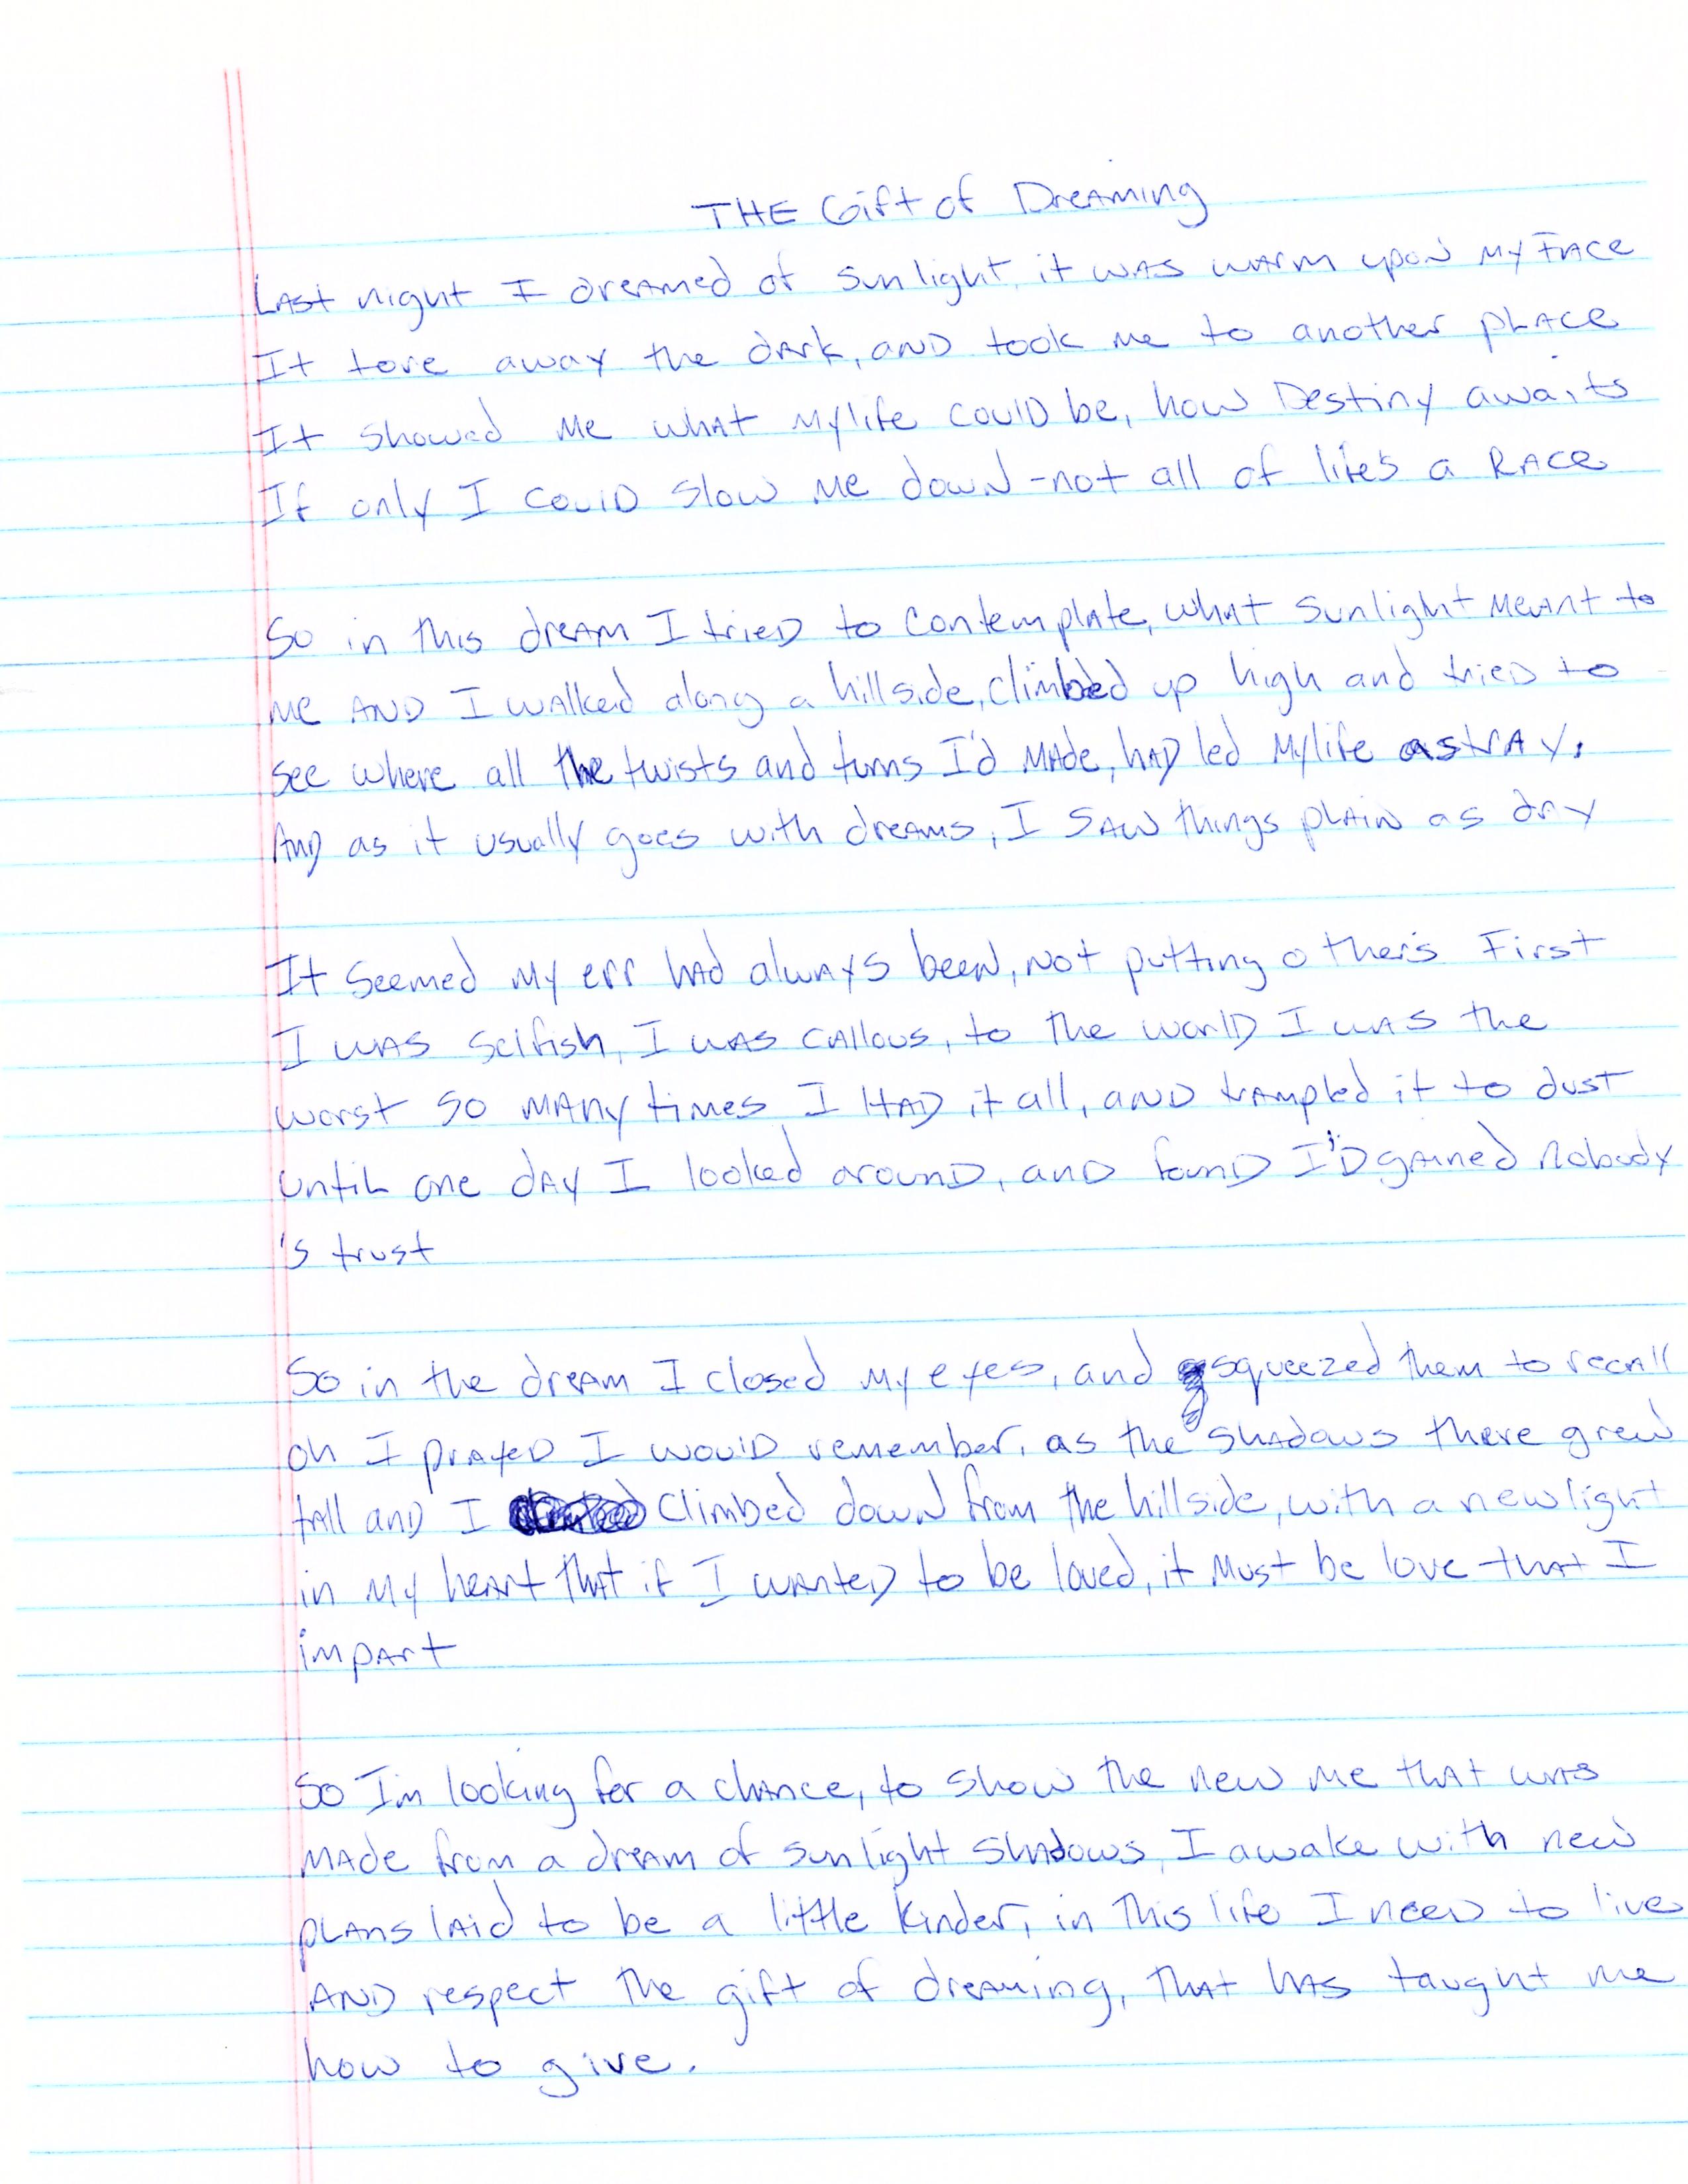 THE Gift of Dreaming
Last night I dreamed of sunlight, it was warm upon my face
It tore away the dark, and took me to another place
It showed me what my life could be, how Destiny awaits
If only I could slow me down - not all of life's a Race
So in this dream I tried to contemplate, what sunlight meant to
me AND I walked along a hillside, climbed up high and tried to
see where all the twists and turns I'd made, had led my life astray.
And as it usually goes with dreams, I saw things plain as day
It seemed my err had always been, not putting other's First
I was selfish, I was callous, to the world I was the
worst so many times I HAD it all, and trampled it to dust
until one day I looked around, and found I'D gained nobody
's trust
So in the dream I closed my eyes, and squeezed them to recall
oh I prayed I would remember, as the shadows there grew
tall and I climbed down from the hillside, with a new light
in my heart that if I wanted to be loved, it must be love that I
impart
So I'm looking for a chance, to show the new me that was
made from a dream of sunlight shadows, I awake with new
plans laid to be a little kinder, in this life I need to live
AND respect the gift of dreaming, that has taught me
how to give.